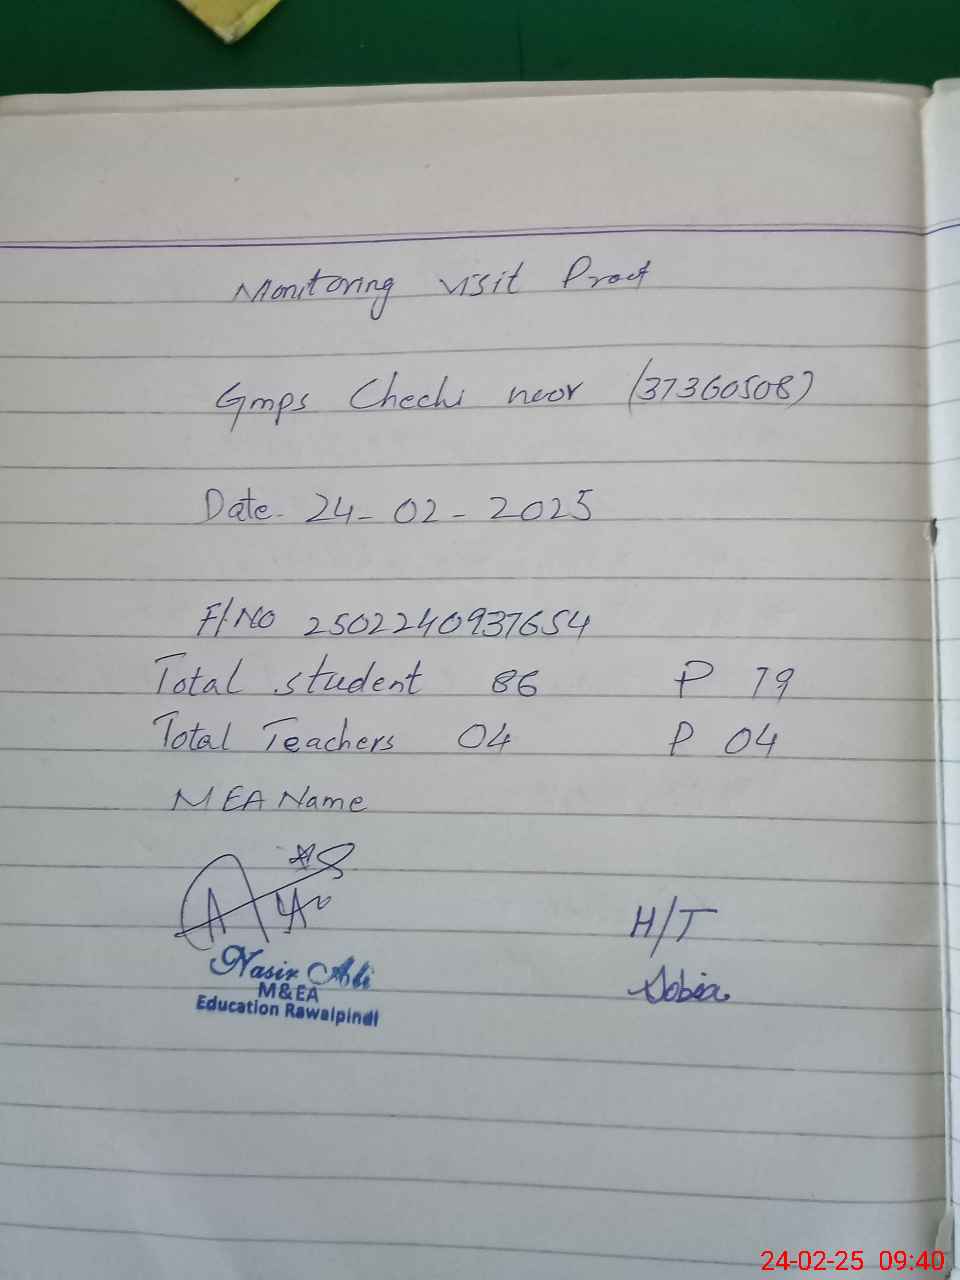 Monitoring visit Proof
Gmps Chechi noor (37360508)
Date - 24 - 02 - 2025
F/No 2502240937654
Total student 86 P 79
Total Teachers 04 P 04
MEA Name
H/T
Nasir Ali
M&EA
Education Rawalpindi
Sobia
24-02-25 09:40